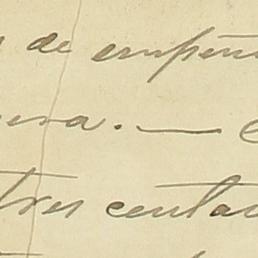 de empeñ
era. —
tres centa